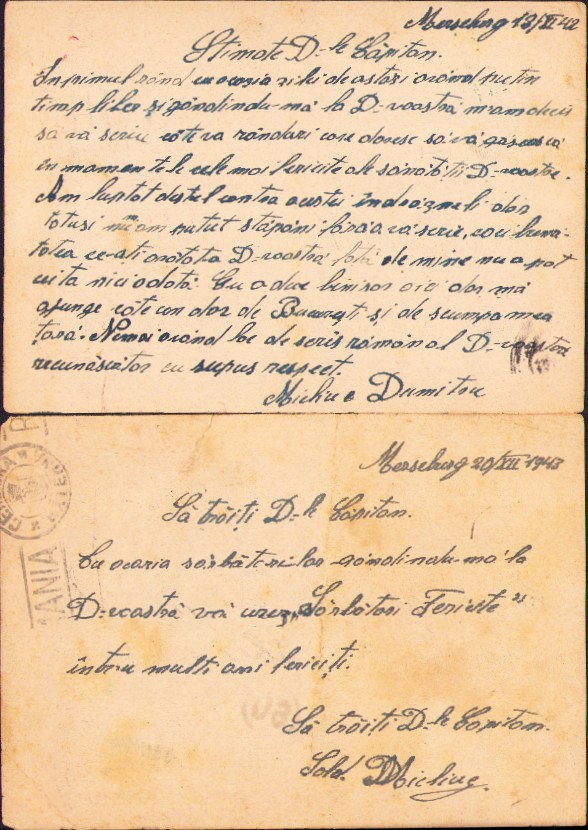 Merseburg 13/XI 42
Stimate D-le Căpitan.
In primul rând cu ocazia zilei de astăzi având puțin
timp liber și gândindu-mă la D-voastră m'am decis
să vă scriu câteva rânduri care doresc să vă găsească
în momentele cele mai fericite ale sănătății D-voastre.
Am luptat destul contra acestui îndrăzneli dar
totuși nu m'am putut stăpâni fără a vă scrie, căci bună-
tatea ce-ați arătat-a D-voastră față de mine nu o pot
uita niciodată. Eu o duc binișor aici dar mă
ajunge câte un dor de București și de scumpa mea
țară. Nemai având loc de scris rămân al D-voastră
recunăscător cu supus respect.
Dumitru
Merseburg 20/XII 1943
Să trăiți D-le Căpitan.
Cu ocazia sărbătorilor gândindu-mă la
D-voastră vă urez „Sărbători Fericite"
întru mulți ani fericiți.
Să trăiți D-le Căpitan.
Sold.